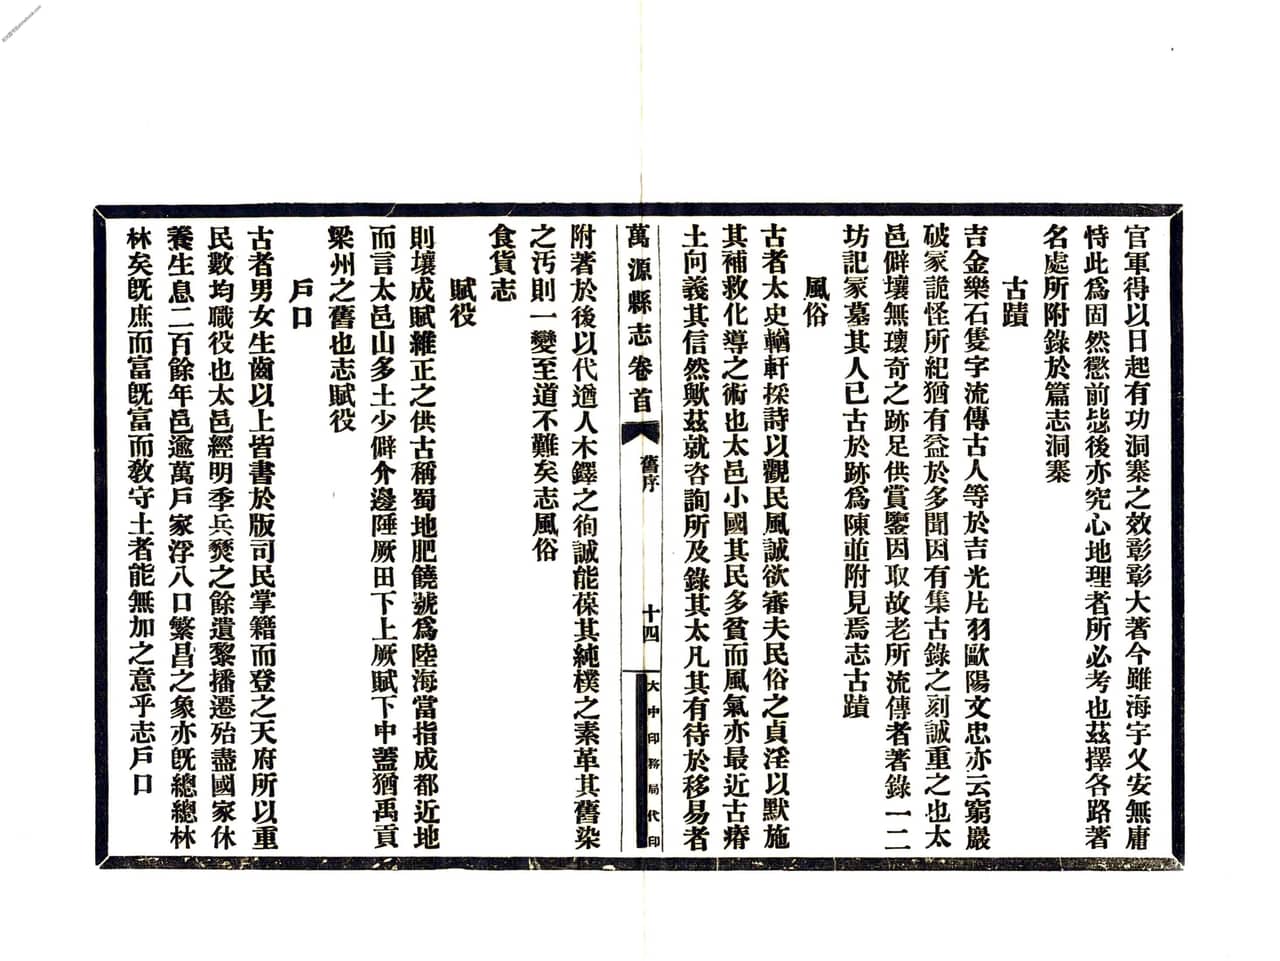 官軍得以日起有功洞寨之效彰彰大著今雖海宇乂安無庸
恃此爲固然懲前毖後亦究心地理者所必考也茲擇各路著
名處所附錄於篇志洞寨
古蹟
吉金樂石隻字流傳古人等於吉光片羽歐陽文忠亦云窮巖
破冢詭怪所紀猶有益於多聞因有集古錄之刻誠重之也太
邑僻壤無瓌奇之跡足供賞鑒因取故老所流傳者著錄一二
坊記冢墓其人已古於跡爲陳並附見焉志古蹟
風俗
古者太史輶軒採詩以觀民風誠欲審夫民俗之貞淫以默施
其補救化導之術也太邑小國其民多貧而風氣亦最近古瘠
土向義其信然歟茲就咨詢所及錄其太凡其有待於移易者
萬源縣志卷首
舊序
十四
大中印務局代印
附著於後以代遒人木鐸之徇誠能葆其純樸之素革其舊染
之汚則一變至道不難矣志風俗
食貨志
賦役
則壤成賦維正之供古稱蜀地肥饒號爲陸海當指成都近地
而言太邑山多土少僻介邊陲厥田下上厥賦下中蓋猶禹貢
梁州之舊也志賦役
戶口
古者男女生齒以上皆書於版司民掌籍而登之天府所以重
民數均職役也太邑經明季兵燹之餘遺黎播遷殆盡國家休
養生息二百餘年邑逾萬戶家浮八口繁昌之象亦旣總總林
林矣旣庶而富旣富而敎守土者能無加之意乎志戶口